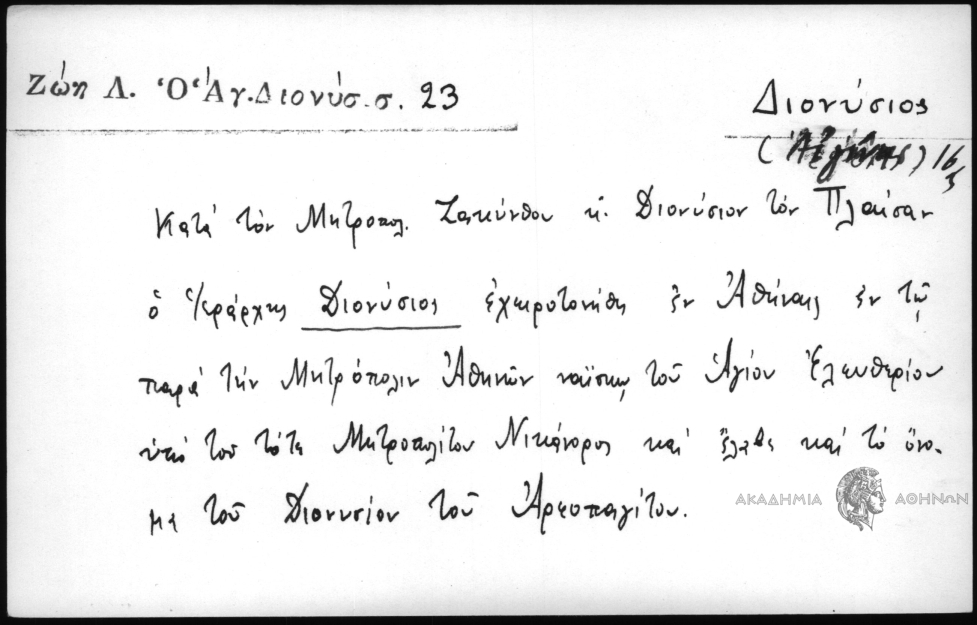 Ζώη Λ. Ὁ Ἅγ. Διονύσ. σ. 23
Διονύσιος
(Αἰγίνης) 16/3
Κατά τόν Μητροπολ. Ζακύνθου κ. Διονύσιον τόν Πλαίσαν
ὁ Ἱεράρχης Διονύσιος ἐχειροτονήθη ἐν Ἀθήναις ἐν τῷ
παρά τήν Μητρόπολιν Ἀθηνῶν ναΐσκῳ τοῦ Ἁγίου Ἐλευθερίου
ὑπό τοῦ τότε Μητροπολίτου Νικάνορος καί ἔλαβε καί τό ὄνο-
μα τοῦ Διονυσίου τοῦ Ἀρεοπαγίτου.
ΑΚΑΔΗΜΙΑ ΑΘΗΝΩΝ